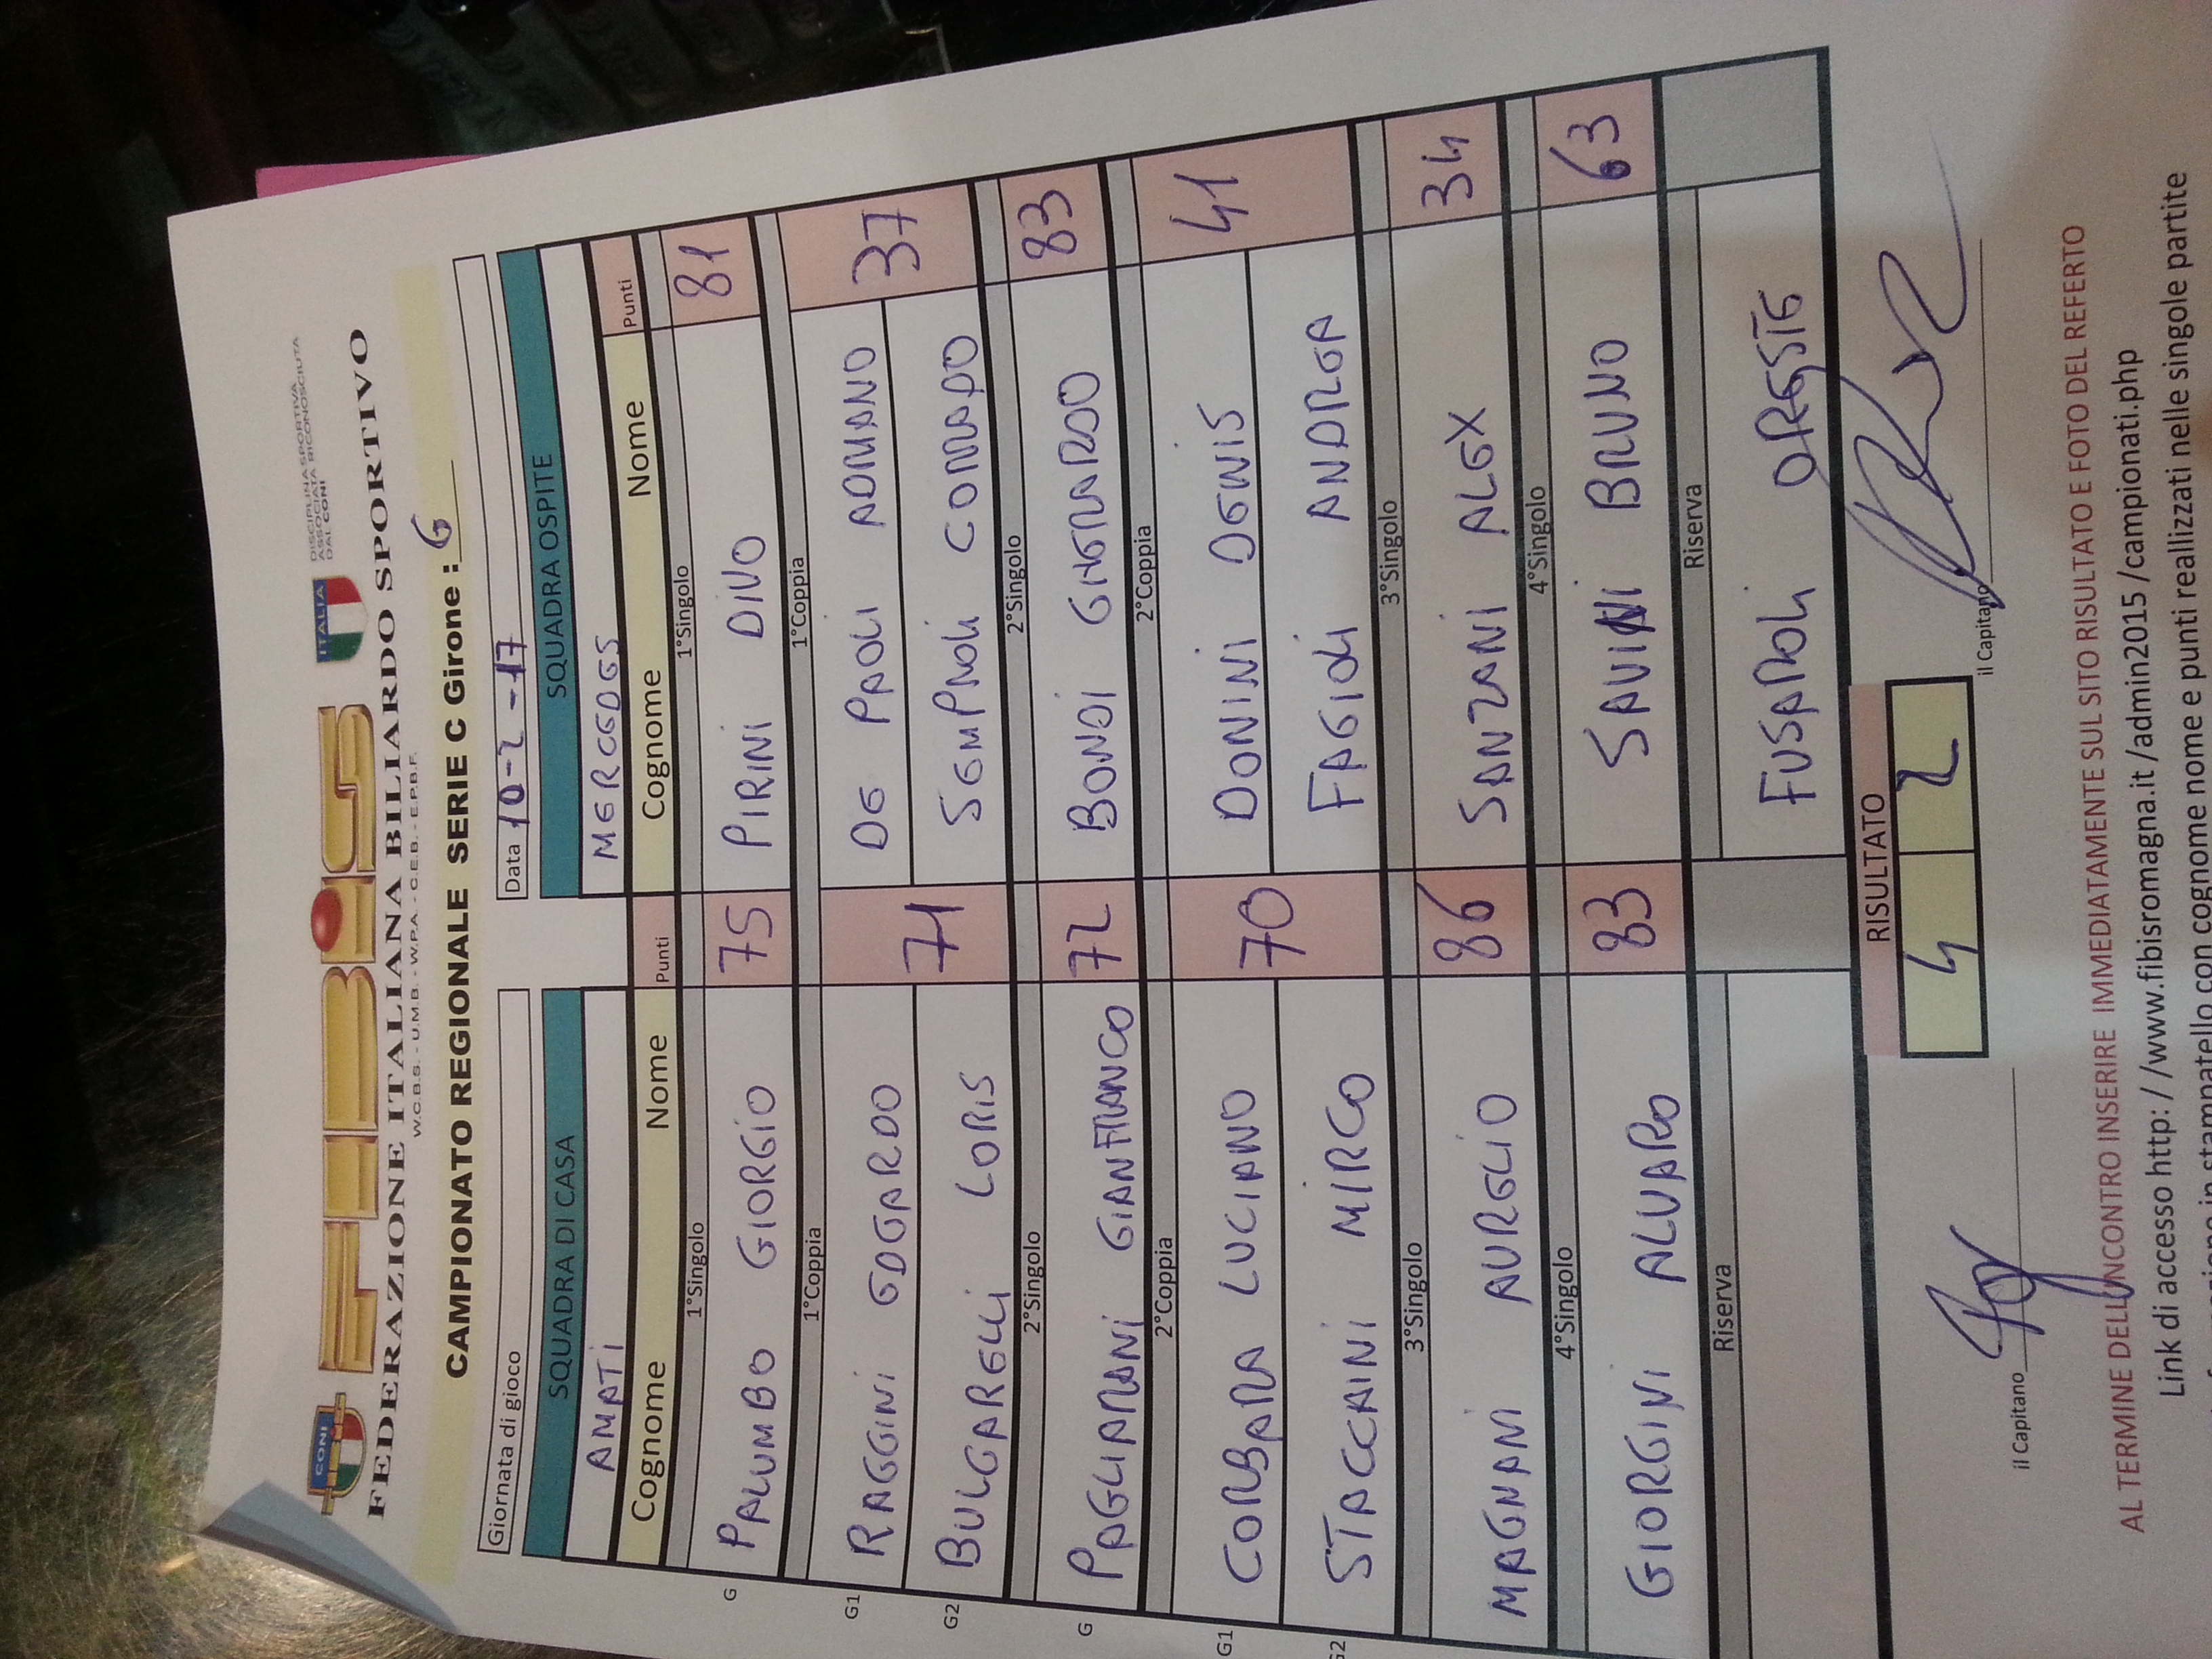 CONI
FIBiS
ITALIA
DISCIPLINA SPORTIVA
ASSOCIATA RICONOSCIUTA
DAL CONI
FEDERAZIONE ITALIANA BILIARDO SPORTIVO
W.C.B.S. - U.M.B. - W.P.A. - C.E.B. - E.P.B.F.
CAMPIONATO REGIONALE SERIE C Girone : G
Giornata di gioco Data 10-2-17
SQUADRA DI CASA SQUADRA OSPITE
AMATI MERCEDES
Cognome Nome Punti Cognome Nome Punti
1°Singolo 1°Singolo
G PALUMBO GIORGIO 75 PIRINI DINO 81
1°Coppia 1°Coppia
G1 RAGGINI EDGARDO 71 DE PAOLI ADRIANO 37
G2 BULGARELLI LORIS SEMPROLI CORRADO
2°Singolo 2°Singolo
G PAGLIARANI GIANFRANCO 72 BONDI GHERARDO 83
2°Coppia 2°Coppia
G1 CORBARA LUCIANO 70 DONINI DENIS 41
G2 STACCAINI MIRCO FAGIOLI ANDREA
3°Singolo 3°Singolo
MAGNANI AURELIO 86 SANZANI ALEX 34
4°Singolo 4°Singolo
GIORGINI ALVARO 83 SAVINI BRUNO 63
Riserva Riserva
FUSAROLI ORESTE
RISULTATO
4 2
il Capitano il Capitano
AL TERMINE DELL'INCONTRO INSERIRE IMMEDIATAMENTE SUL SITO RISULTATO E FOTO DEL REFERTO
Link di accesso http: / /www.fibisromagna.it /admin2015 /campionati.php
in stampatello con cognome nome e punti realizzati nelle singole partite